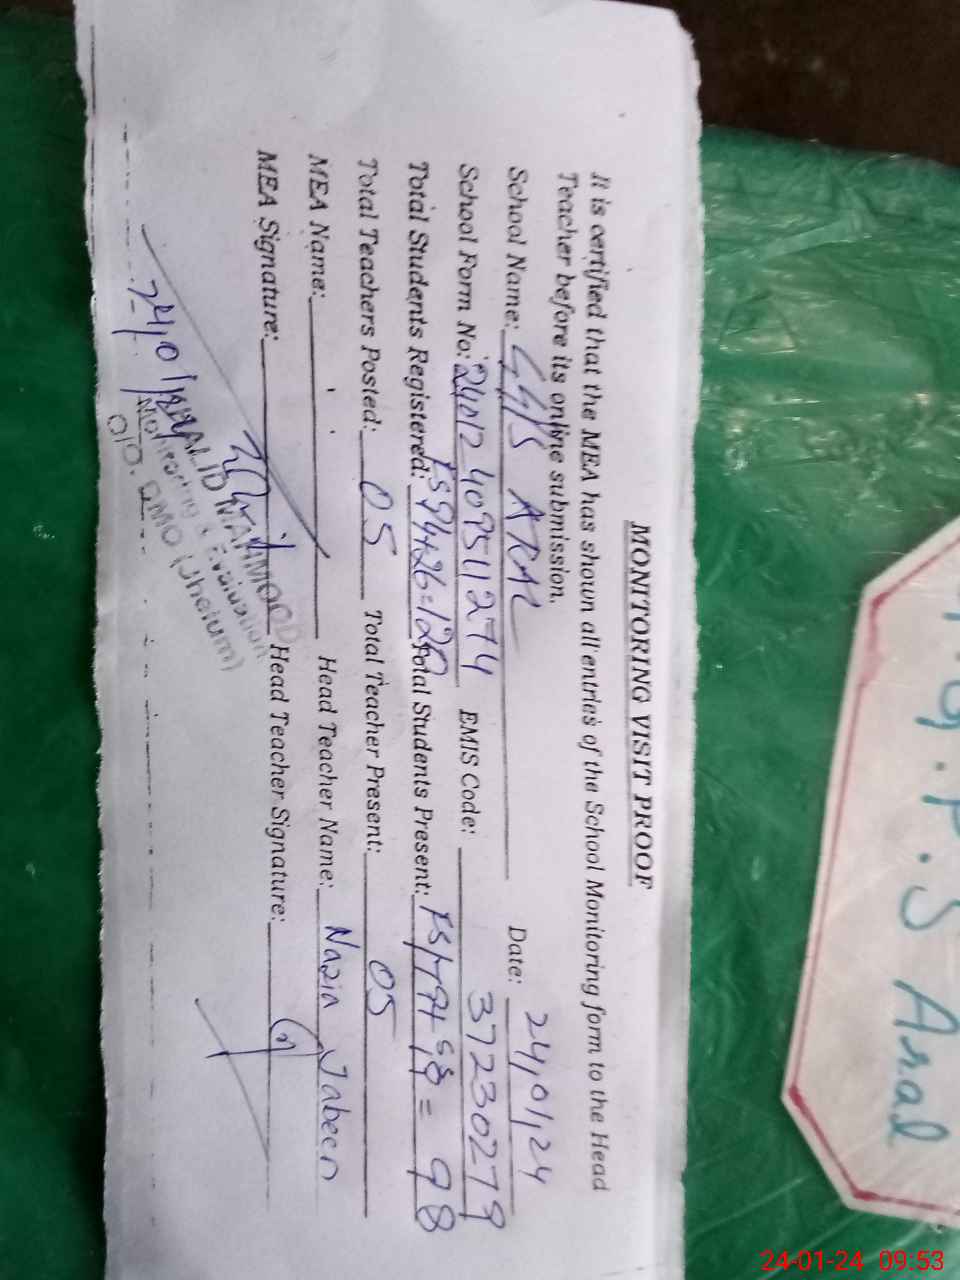 MONITORING VISIT PROOF
It is certified that the MEA has shown all entries of the School Monitoring form to the Head
Teacher before its online submission.
School Name: GGPS ARAL Date: 24/01/24
School Form No: 24012409511274 EMIS Code: 37230279
Total Students Registered: 94+26=120 Total Students Present: = 98
Total Teachers Posted: 05 Total Teacher Present: 05
MEA Name: Head Teacher Name: Nazia Jabeen
MEA Signature: Head Teacher Signature:
KHALID MAHMOOD
Monitoring & Evaluation
O/O. DMO (Jhelum)
P.S Aral
24-01-24 09:53